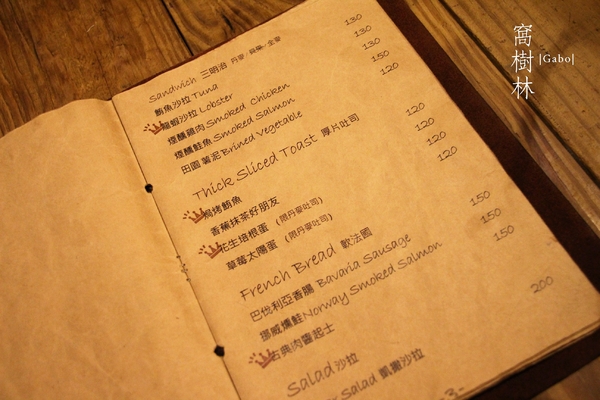 窩樹林 |Gabo|
Sandwich 三明治 丹麥/貝果/全麥
鮪魚沙拉 Tuna 130
龍蝦沙拉 Lobster 130
煙醺雞肉 Smoked Chicken 130
煙醺鮭魚 Smoked Salmon 150
田園薯泥 Brined Vegetable 120
Thick Sliced Toast 厚片吐司
焗烤鮪魚 120
香蕉抹茶好朋友 120
花生培根蛋 (限丹麥吐司) 120
草莓太陽蛋 (限丹麥吐司) 120
French Bread 軟法國
巴伐利亞香腸 Bavaria Sausage 150
挪威燻鮭 Norway Smoked Salmon 150
古典肉醬起士 150
Salad 沙拉
Salad 凱撒沙拉 200
-3-